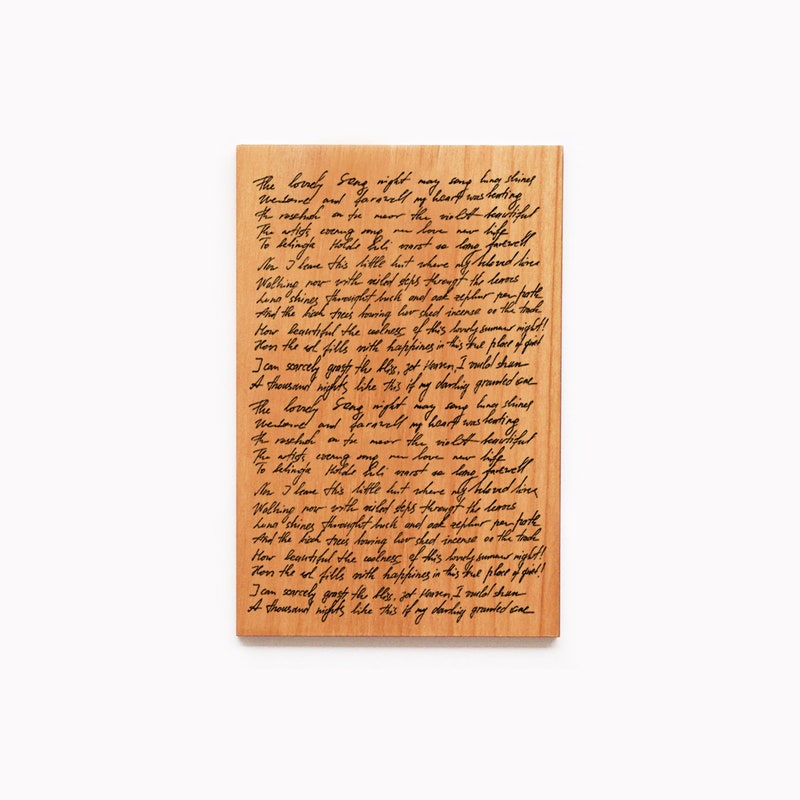 The lovely Song night may song Luna shines
Welcome and farewell my heart was beating
the rosebush on the moor the violet beautiful
The artists evening song new love new life
To belinda Holde Lili warst so long farewell
Now I leave this little hut where my beloved lives
Walking now with veiled steps through the leaves
Luna shines throught bush and oak zephur per path
And the birch trees bowing low shed incense on the track
How beautiful the coolness of this lovely summer night!
How the soul fills with happiness in this true place of quiet!
I can scarcely grasp the bliss, yet Heaven, I would shun
A thousand nights like this if my darling granted one
The lovely Song night may song Luna shines
Welcome and farewell my heart was beating
the rosebush on the moor the violet beautiful
The artists evening song new love new life
To belinda Holde Lili warst so long farewell
Now I leave this little hut where my beloved lives
Walking now with veiled steps through the leaves
Luna shines throught bush and oak zephur per path
And the birch trees bowing low shed incense on the track
How beautiful the coolness of this lovely summer night!
How the soul fills with happiness in this true place of quiet!
I can scarcely grasp the bliss, yet Heaven, I would shun
A thousand nights like this if my darling granted one